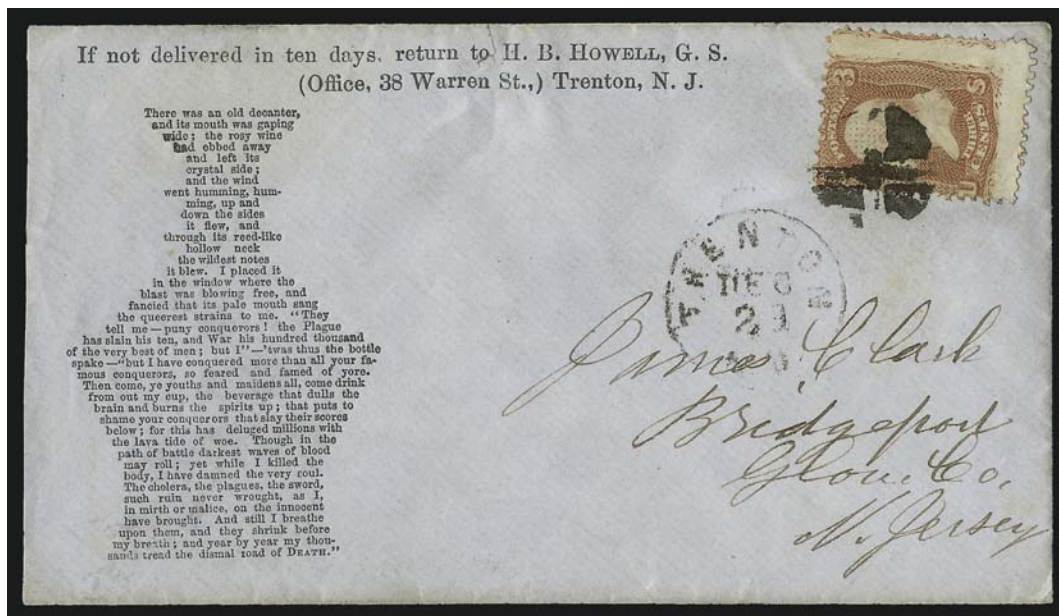 If not delivered in ten days, return to H. B. HOWELL, G. S.
(Office, 38 Warren St.,) Trenton, N. J.
There was an old decanter,
and its mouth was gaping
wide; the rosy wine
had ebbed away
and left its
crystal side;
and the wind
went humming, hum-
ming, up and
down the sides
it flew, and
through its reed-like
hollow neck
the wildest notes
it blew. I placed it
in the window where the
blast was blowing free, and
fancied that its pale mouth sang
the queerest strains to me. "They
tell me—puny conquerors! the Plague
has slain his ten, and War his hundred thousand
of the very best of men; but I"—'twas thus the bottle
spake—"but I have conquered more than all your fa-
mous conquerors, so feared and famed of yore.
Then come, ye youths and maidens all, come drink
from out my cup, the beverage that dulls the
brain and burns the spirits up; that puts to
shame your conquerors that slay their scores
below; for this has deluged millions with
the lava tide of woe. Though in the
path of battle darkest waves of blood
may roll; yet while I killed the
body, I have damned the very soul.
The cholera, the plagues, the sword,
such ruin never wrought, as I,
in mirth or malice, on the innocent
have brought. And still I breathe
upon them, and they shrink before
my breath; and year by year my thou-
sands tread the dismal road of DEATH."
TRENTON
DEC
James Clark
Bridgeport
Glou. Co.
N. Jersey